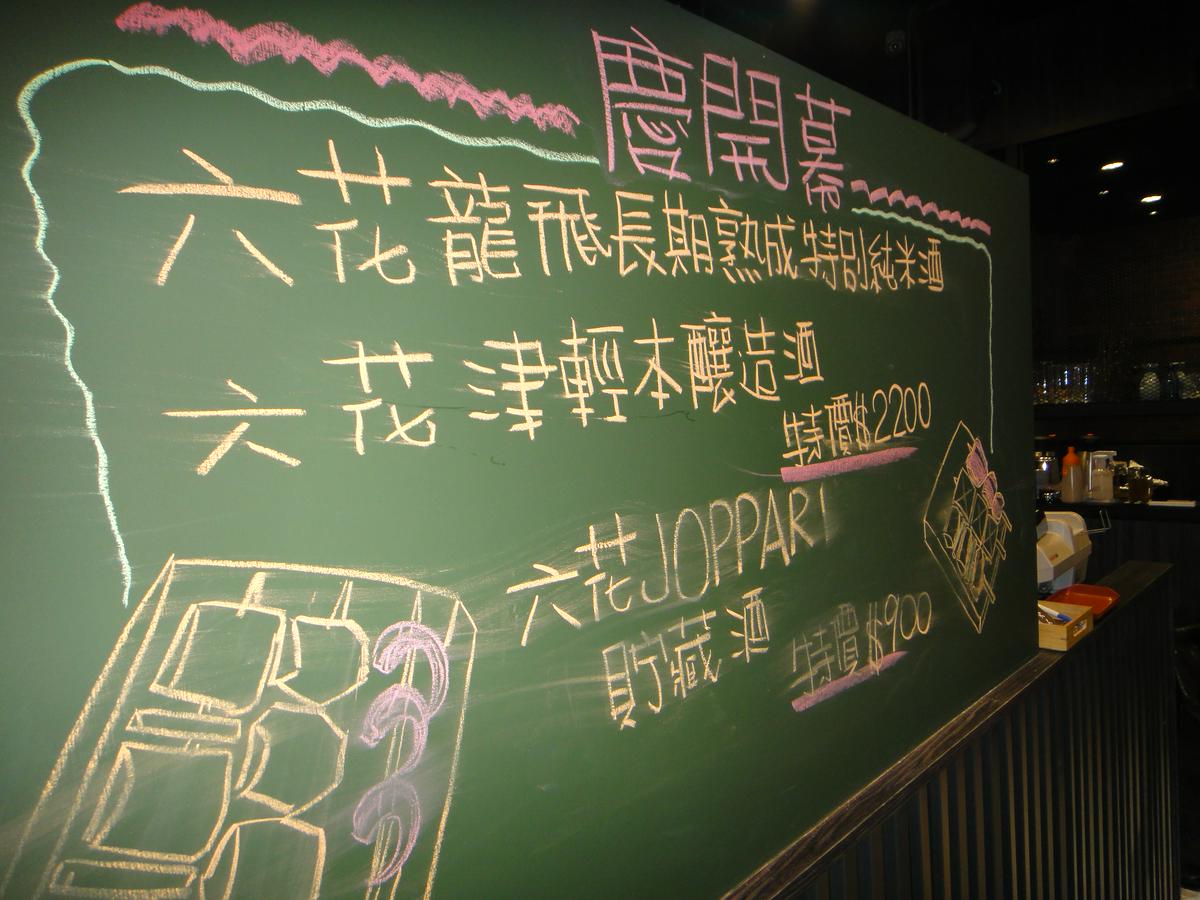 慶開幕
六花龍飛長期熟成特別純米酒
六花津輕本釀造酒
特價$2200
六花JOPPARI
貯藏酒
特價$900